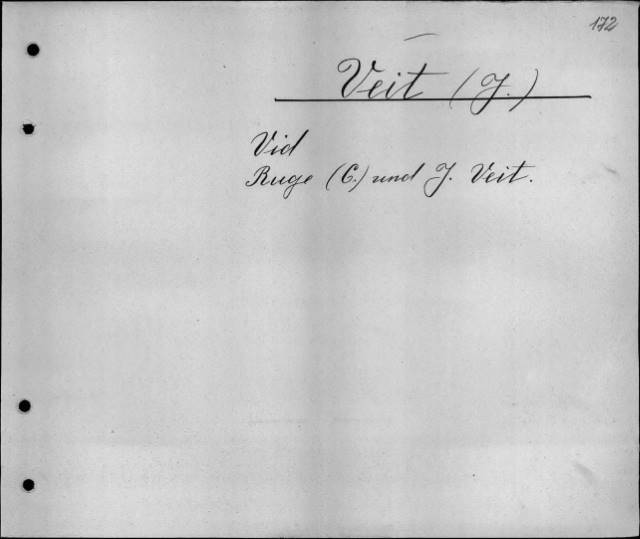 172
Veit (J.)
Vid
Ruge (C.) und J. Veit.